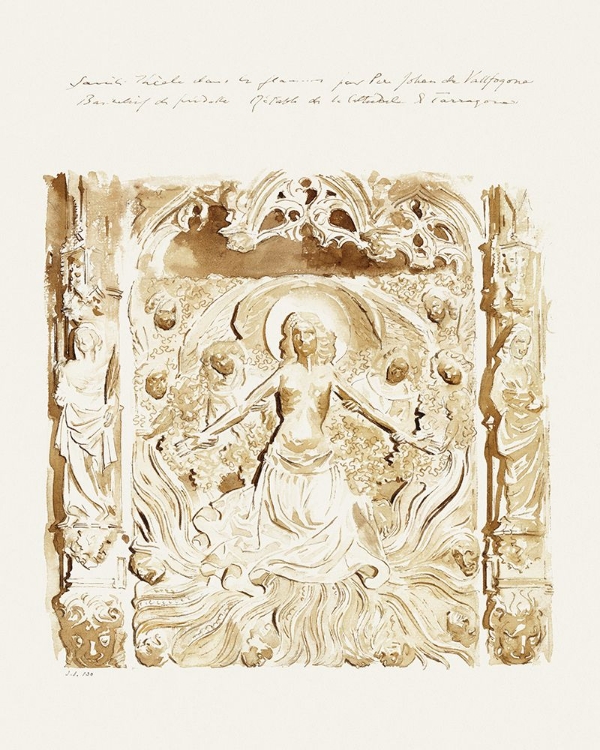 Sainte Thècle dans les flammes par Pere Johan de Vallfogona
Bas relief de predelle Retable de la Cathédrale de Tarragona